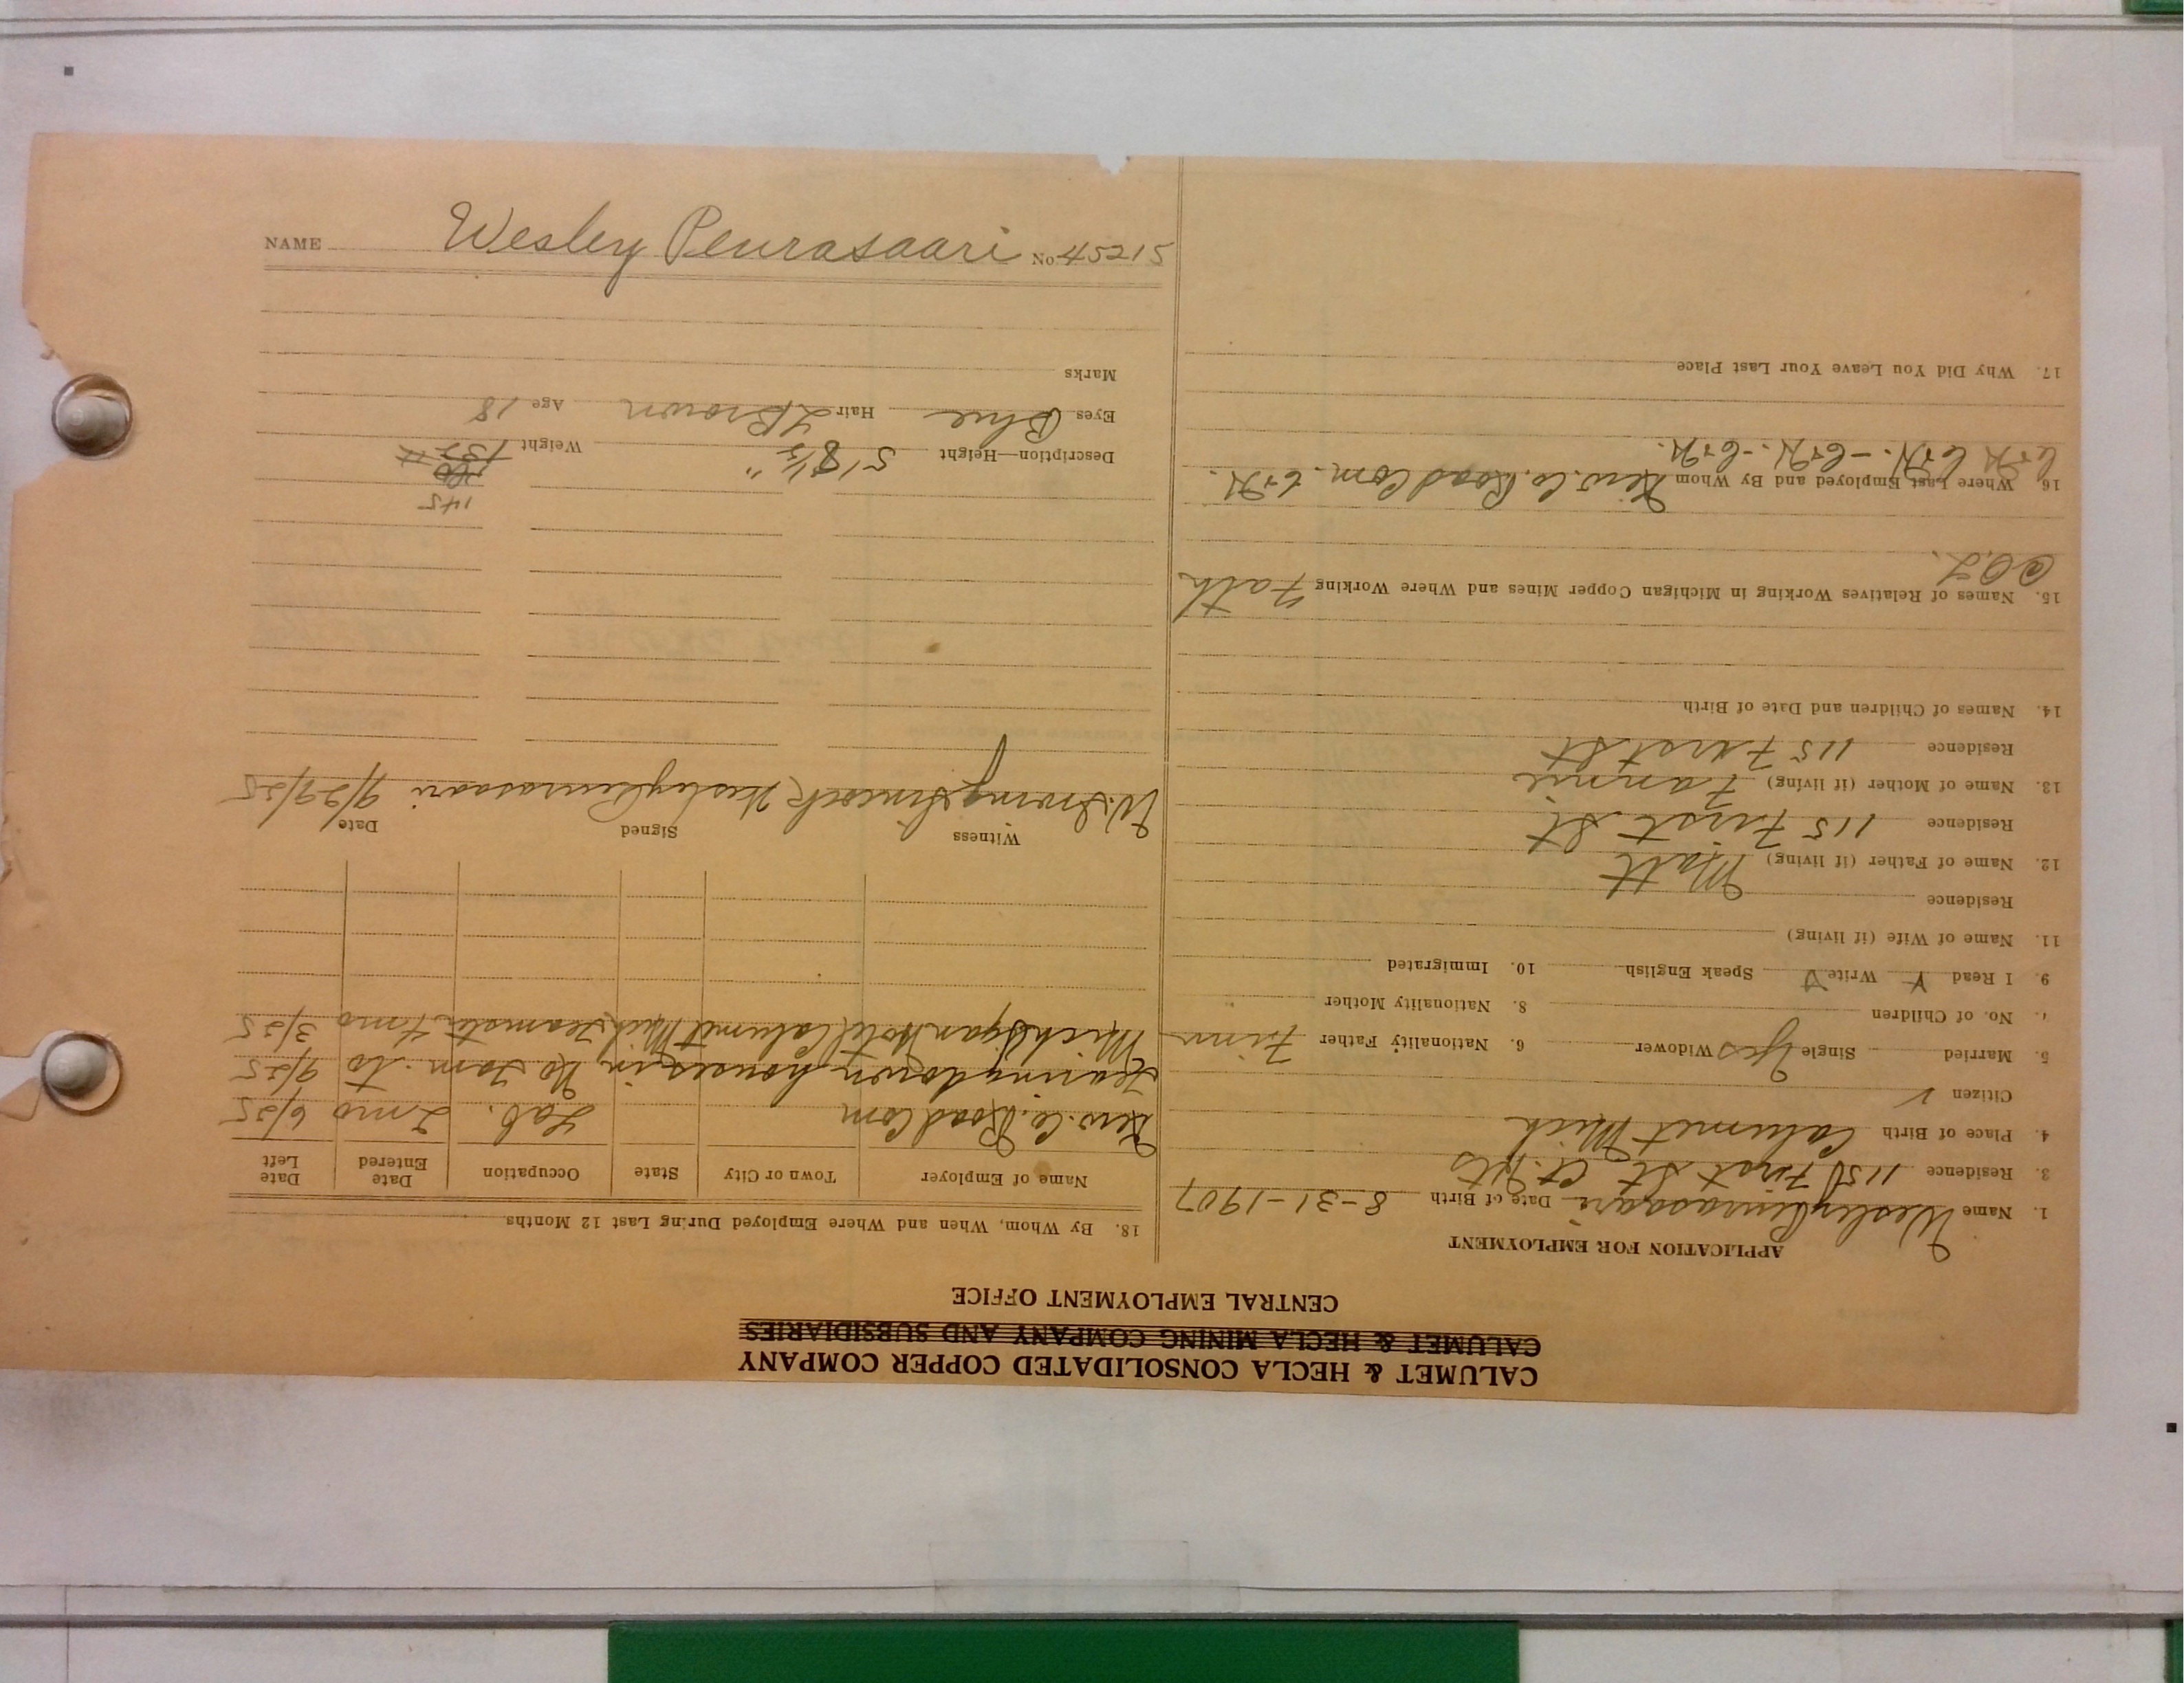 CALUMET & HECLA CONSOLIDATED COPPER COMPANY
CALUMET & HECLA MINING COMPANY AND SUBSIDIARIES
CENTRAL EMPLOYMENT OFFICE
APPLICATION FOR EMPLOYMENT
1. Name Wesley Peurasaari Date of Birth 8-31-1907
3. Residence 115 First St
4. Place of Birth Calumet Mich
Citizen ✓
5. Married Single Yes Widower 6. Nationality Father Finn
7. No. of Children 8. Nationality Mother
9. I Read Y Write Y Speak English 10. Immigrated
11. Name of Wife (if living)
Residence
12. Name of Father (if living) Matt
Residence 115 First St
13. Name of Mother (if living) Fannie
Residence 115 First St
14. Names of Children and Date of Birth
15. Names of Relatives Working in Michigan Copper Mines and Where Working Fath
16. Where Last Employed and By Whom Kew. Co. Road Com. C+H.
C+H C+H. - C+H. - C+H.
17. Why Did You Leave Your Last Place
18. By Whom, When and Where Employed During Last 12 Months.
Name of Employer Town or City State Occupation Date Entered Date Left
Kew. Co. Road Com Lab. 2 mo 6/25
Tearing down houses in No Tam. to 9/25
Michigan Hotel Calumet Mich Teamster 4 mo 3/25
Witness Signed Date
Wesley Peurasaari 9/29/25
145
160
Description—Height 5' 8½" Weight 155 #
Eyes Blue Hair L Brown Age 18
Marks
NAME Wesley Peurasaari No. 45215